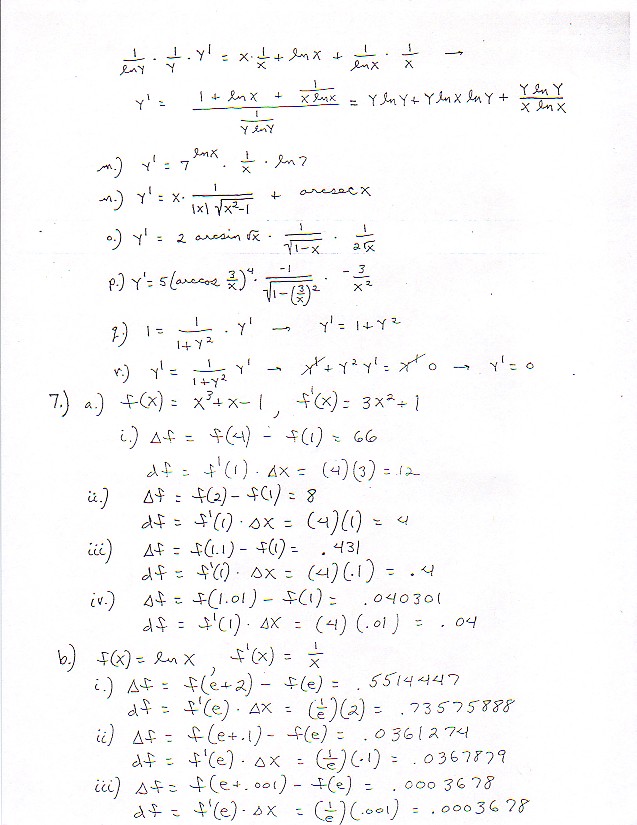 1/lnY · 1/Y · Y' = x·1/x + lnx + 1/lnx · 1/x →
Y' = (1 + lnx + 1/(x lnx)) / (1/(Y lnY)) = Y lnY + Y lnx lnY + (Y lnY)/(x lnx)
m.) Y' = 7^(lnx) · 1/x · ln7
n.) Y' = x· 1/(|x| √(x²-1)) + arcsec x
o.) Y' = 2 arcsin √x · 1/√(1-x) · 1/(2√x)
p.) Y' = 5(arccos 3/x)⁴ · -1/√(1-(3/x)²) · -3/x²
q.) 1 = 1/(1+Y²) · Y' → Y' = 1+Y²
r.) Y' = 1/(1+Y²) Y' → Y' + Y² Y' = Y' 0 → Y' = 0
7.) a.) f(x) = x³+x-1 , f'(x) = 3x²+1
i.) Δf = f(4) - f(1) = 66
df = f'(1) · Δx = (4)(3) = 12
ii.) Δf = f(2) - f(1) = 8
df = f'(1) · Δx = (4)(1) = 4
iii) Δf = f(1.1) - f(1) = .431
df = f'(1) · Δx = (4)(.1) = .4
iv.) Δf = f(1.01) - f(1) = .040301
df = f'(1) · Δx = (4)(.01) = .04
b.) f(x) = lnx , f'(x) = 1/x
i.) Δf = f(e+2) - f(e) = .5514447
df = f'(e) · Δx = (1/e)(2) = .73575888
ii) Δf = f(e+.1) - f(e) = .0361274
df = f'(e) · Δx = (1/e)(.1) = .0367879
iii) Δf = f(e+.001) - f(e) = .0003678
df = f'(e) · Δx = (1/e)(.001) = .0003678